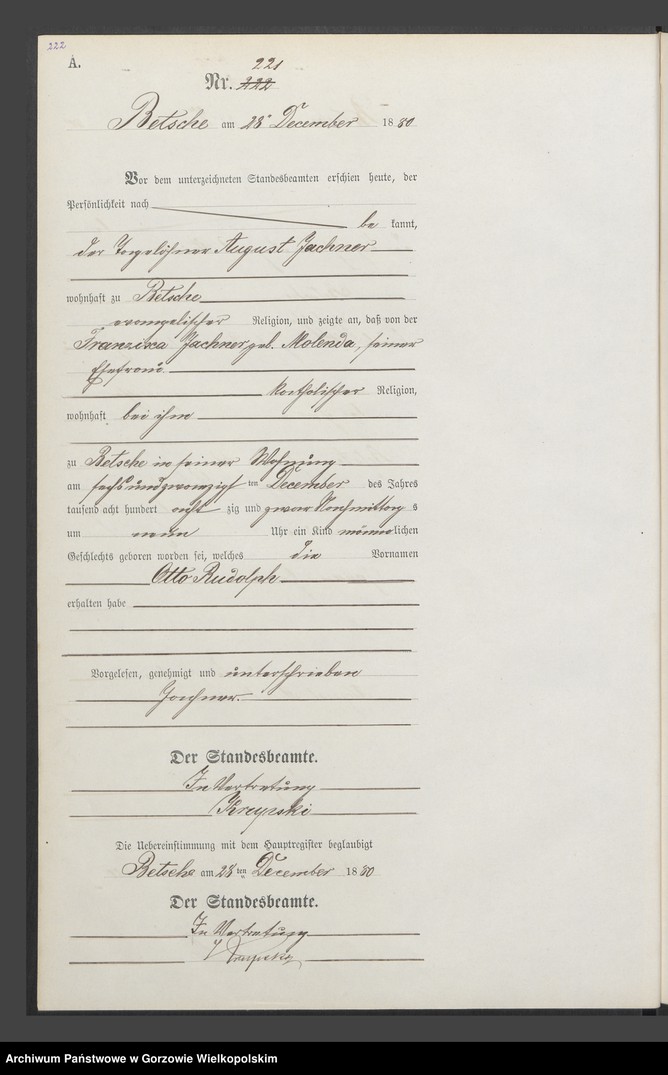 222
A.
221
Nr. 222
Betsche am 28ten December 1880
Vor dem unterzeichneten Standesbeamten erschien heute, der
Persönlichkeit nach
be kannt,
der Tagelöhner August Jachner
wohnhaft zu Betsche
evangelischer Religion, und zeigte an, daß von der
Franziska Jachner geb. Molenda, seiner
Ehefrau
katholischer Religion,
wohnhaft bei ihm
zu Betsche in seiner Wohnung
am sechsundzwanzigsten December des Jahres
tausend acht hundert acht zig und zwar Nachmittag s
um neun Uhr ein Kind männlichen
Geschlechts geboren worden sei, welches die Vornamen
Otto Rudolph
erhalten habe
Vorgelesen, genehmigt und unterschrieben
Jachner.
Der Standesbeamte.
In Vertretung
Der Uebereinstimmung mit dem Hauptregister beglaubigt
Betsche am 28ten December 1880
Der Standesbeamte.
In Vertretung
Archiwum Państwowe w Gorzowie Wielkopolskim